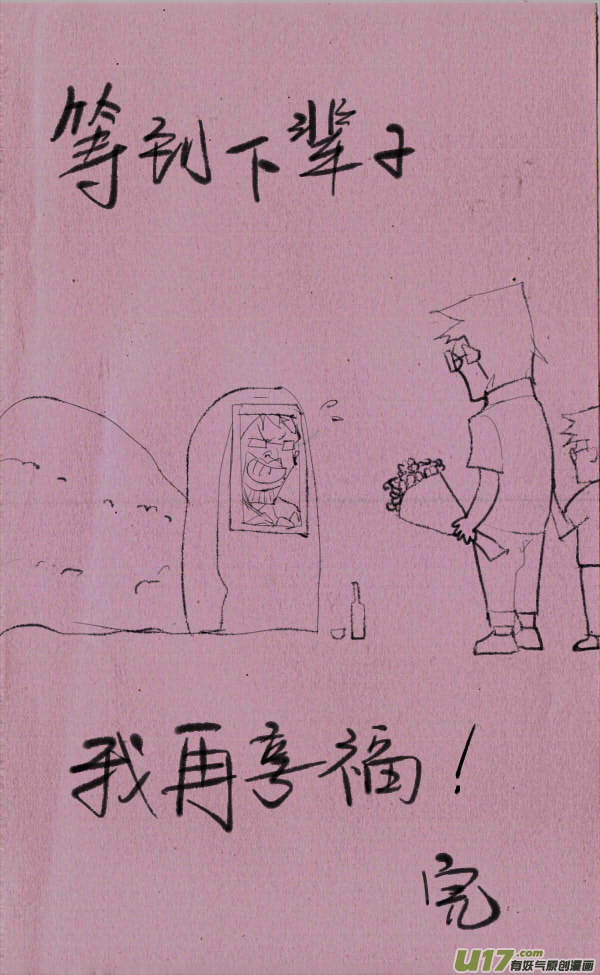 等到下辈子
我再享福！
完
U17.com
有妖气原创漫画